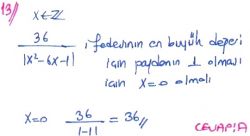 13/
x∈Z
36 / |x²-6x-1| , ifadesinin en büyük değeri
için paydanın 1 olması
için x=0 olmalı
x=0  36 / |-1| = 36 //
CEVAP: A